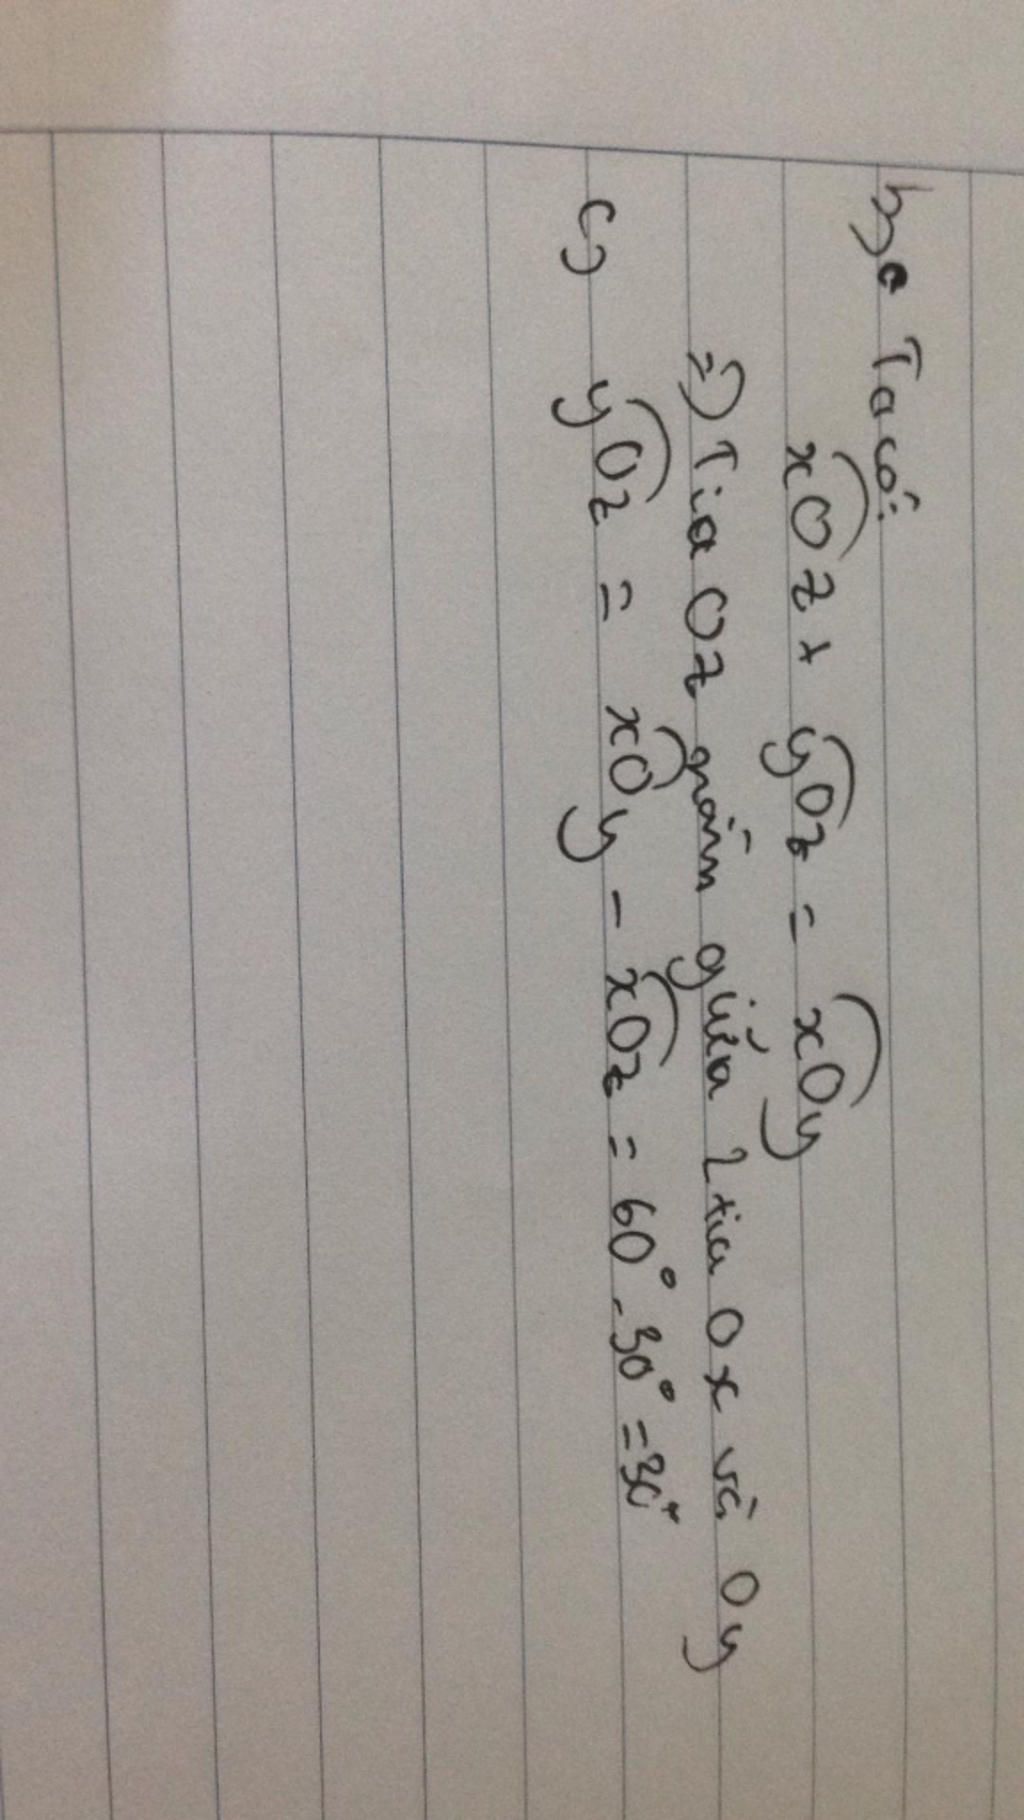 b, Ta có:
xOz + yOz = xOy
=) Tia Oz nằm giữa 2 tia Ox và Oy
c, yOz = xOy - xOz = 60° - 30° = 30°